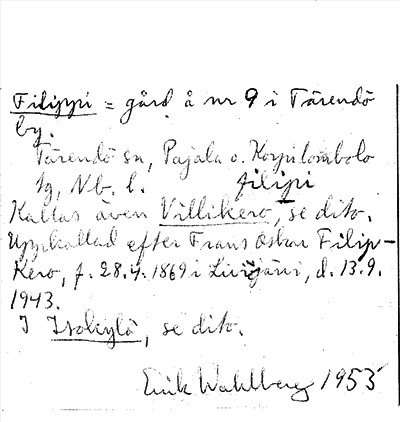 Filippi = gård å nr 9 i Tärendö
by.
Tärendö sn, Pajala o. Korpilombolo
tg, Nb. l. filipi
Kallas även Villikero, se dito.
Uppkallad efter Frans Oskar Filip-
Kero, f. 28.4. 1869 i Liviöjärvi, d. 13.9.
1943.
I Isokylä, se dito.
Erik Wahlberg 1953